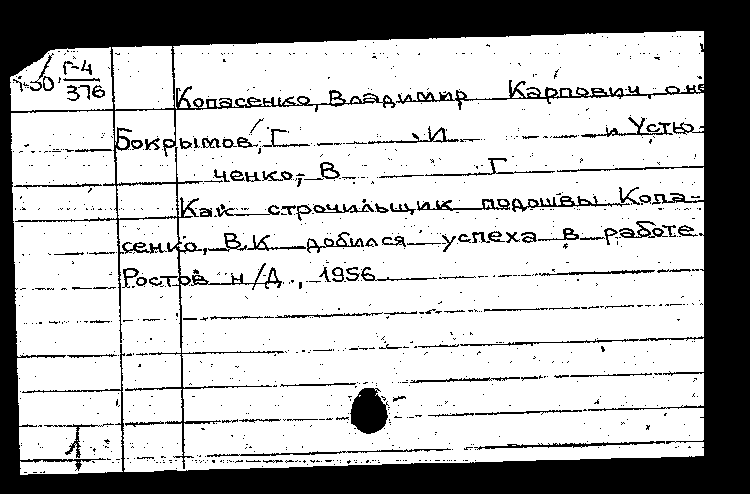 Г-4
376
Копасенко, Владимир Карпович, он
Бокрымов, Г И и Устю-
ченко, В Г
Как строчильщик подошвы Копа-
сенко, В.К добился успеха в работе.
Ростов н/Д., 1956
1